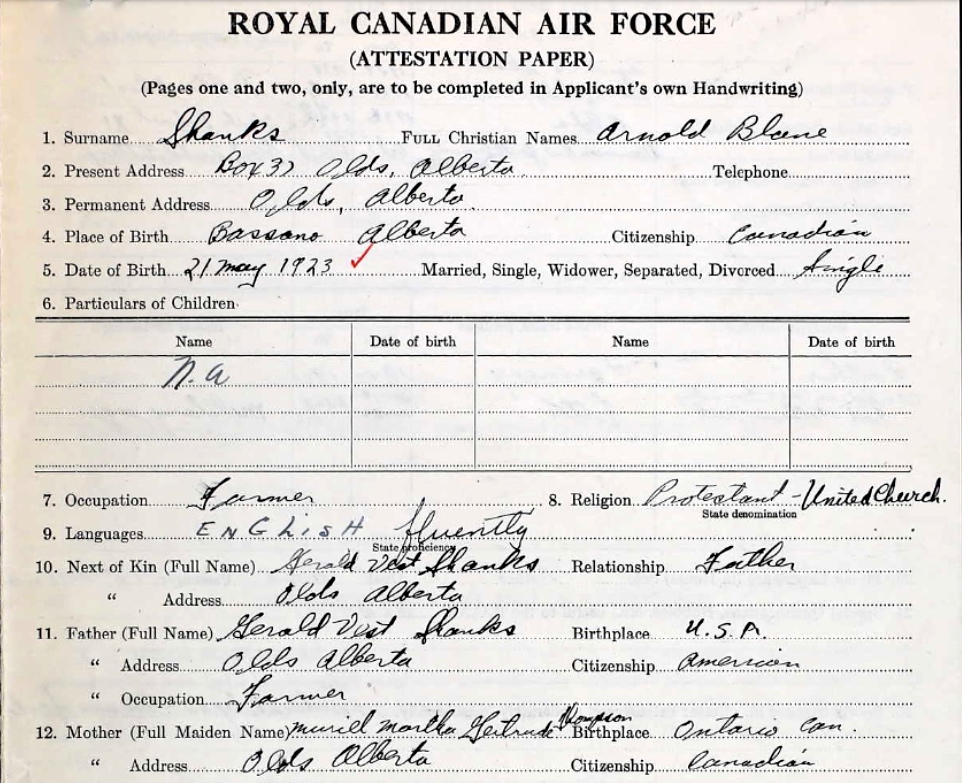 ROYAL CANADIAN AIR FORCE
(ATTESTATION PAPER)
(Pages one and two, only, are to be completed in Applicant's own Handwriting)
1. Surname Shanks FULL CHRISTIAN NAMES Arnold Blane
2. Present Address Box 37 Olds, Alberta. Telephone
3. Permanent Address Olds, Alberta.
4. Place of Birth Bassano Alberta Citizenship Canadian
5. Date of Birth 21 May 1923 Married, Single, Widower, Separated, Divorced Single
6. Particulars of Children
Name Date of birth Name Date of birth
N.a
7. Occupation Farmer 8. Religion Protestant - United Church.
State denomination
9. Languages ENGLISH fluently
State proficiency
10. Next of Kin (Full Name) Gerald Vest Shanks Relationship Father
" Address Olds Alberta
11. Father (Full Name) Gerald Vest Shanks Birthplace U.S.A.
" Address Olds Alberta Citizenship American
" Occupation Farmer
12. Mother (Full Maiden Name) Muriel Martha Gertrude Thompson Birthplace Ontario Can.
" Address Olds Alberta Citizenship Canadian